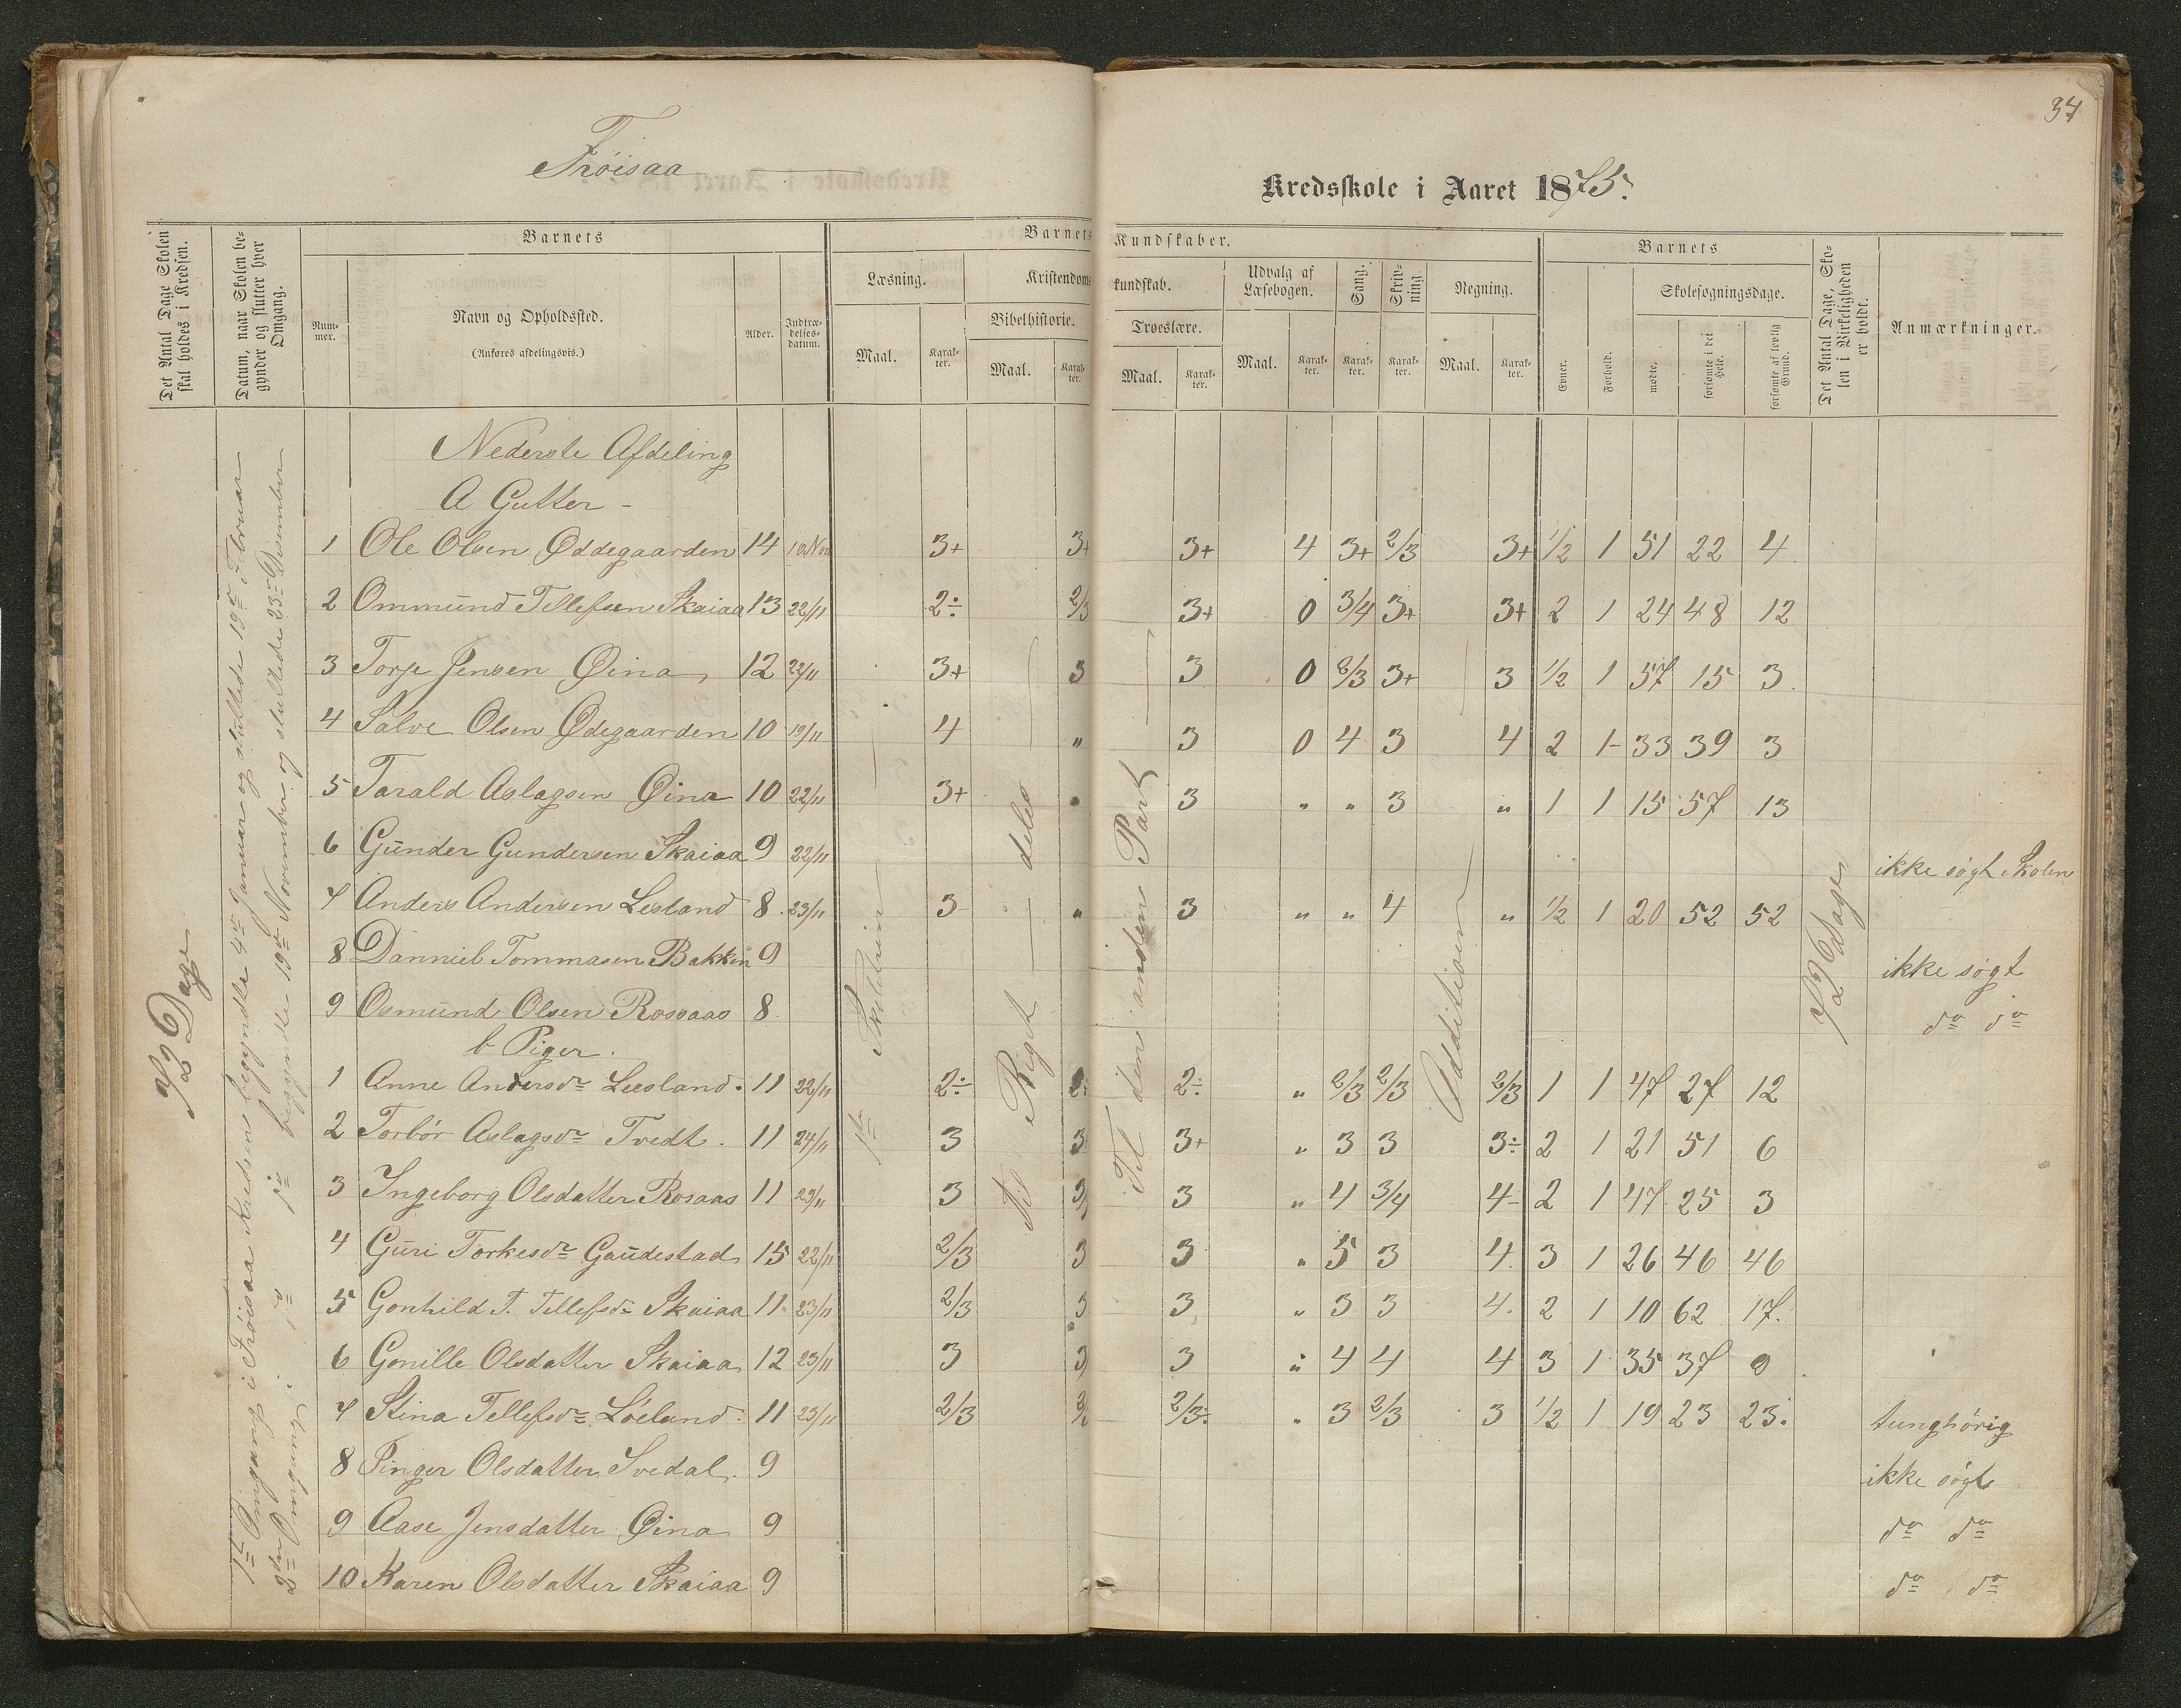 37
Frøisaa
Kredsskole i Aaret 1875.
Det Antal Dage Skolen skal holdes i Kredsen.
Datum, naar Skolen begynder og slutter hver Omgang.
Barnets
Nummer.
Navn og Opholdssted.
(Anføres afdelingsvis.)
Alder.
Indtrædelsesdatum.
Barnets Kundskaber.
Læsning.
Maal.
Karakter.
Kristendomskundskab.
Bibelhistorie.
Maal.
Karakter.
Troeslære.
Maal.
Karakter.
Udvalg af Læsebogen.
Maal.
Karakter.
Sang.
Karakter.
Skrivning.
Karakter.
Regning.
Maal.
Karakter.
Barnets
Evner.
Forhold.
Skolesøgningsdage.
mødte.
forsømte i det Hele.
forsømte af lovlig Grund.
Det Antal Dage, Skolen i Virkeligheden er holdt.
Anmærkninger.
72 Dage
1ste Omgang i Frøisaa Kredsen begyndte 4de Januar og sluttede 19de Februar
2den Omgang i do do begyndte 19de November og sluttede 23de December
Nederste Afdeling
A Gutter -
1 Ole Olsen Øddegaarden 14 10.Nov 3+ 3+ 3+ 4 3+ 2/3 3+ 1/2 1 51 22 4
2 Ommund Tellefsen Skaiaa 13 22/11 2÷ 2/3 3+ 0 3/4 3+ 3+ 2 1 24 48 12
3 Torje Jensen Øina 12 22/11 3+ 3 3 0 2/3 3+ 3 1/2 1 57 15 3
4 Salve Olsen Ødegaarden 10 19/11 4 " 3 0 4 3 4 2 1- 33 39 3
5 Tarald Aslagsen Øina 10 22/11 3+ " 3 " " 3 " 1 1 15 57 13
6 Gunder Gundersen Skaiaa 9 22/11 ikke søgt Skolen
7 Anders Andersen Lesland 8 23/11 3- " 3 " " 4 " 1/2 1 20 52 52
8 Danniel Tommasen Bakken 9 ikke søgt
9 Osmund Olsen Rossaas 8. do do
b Piger.
1 Anne Andersdr Leesland. 11 22/11 2÷ 2÷ 2÷ " 2/3 2/3 2/3 1 1 47 27 12
2 Torbør Aslagsdr Tvedt. 11 24/11 3 3 3+ " 3 3 3÷ 2 1 21 51 6
3 Ingeborg Olsdatter Rosaas 11 29/11 3 3/ 3 " 4 3/4 4- 2 1 47 25 3
4 Guri Torkesdr Gaudestad 15 22/11 2/3 3 3 " 5 3 4. 3 1 26 46 46
5 Gonhild T. Tellefsdr Skaiaa 11 23/11 2/3 3 3 " 3 3 4. 2 1 10 62 17.
6 Gonille Olsdatter Skaiaa 12 23/11 3 3 3 " 4 4 4 3 1 35 37 0
7 Stina Tellefsdr Löeland. 11 23/11 2/3 2/3 2/3÷ " 3 2/3 3 1/2 1 19 23 23. tunghørig
8 Pinger Olsdatter Svedal. 9 ikke søgt
9 Aase Jensdatter Øina 9 do do
10 Karen Olsdatter Skaiaa 9 do do
Til Rigets deles
Til den anden Part
Additionen
72 Dage